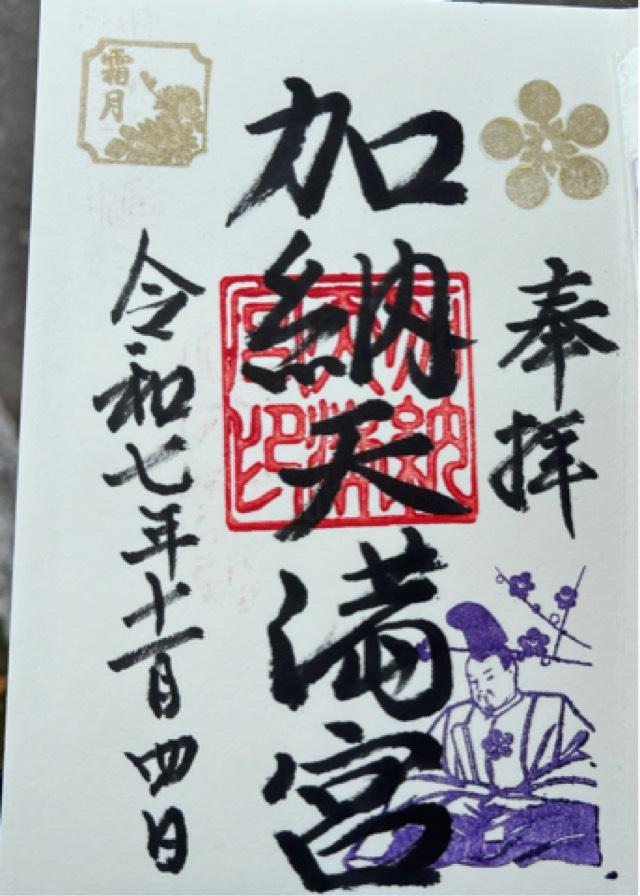 奉拝
加納天満宮
令和七年十一月四日
霜月